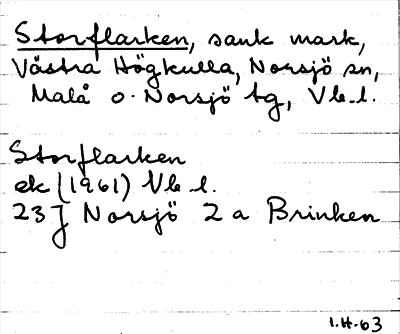 Storflarken, sank mark,
Västra Högkulla, Norsjö sn,
Malå o. Norsjö tg, Vb. l.
Storflarken
ek (1961) Vb l.
23J Norsjö 2 a Brinken
I.H-63